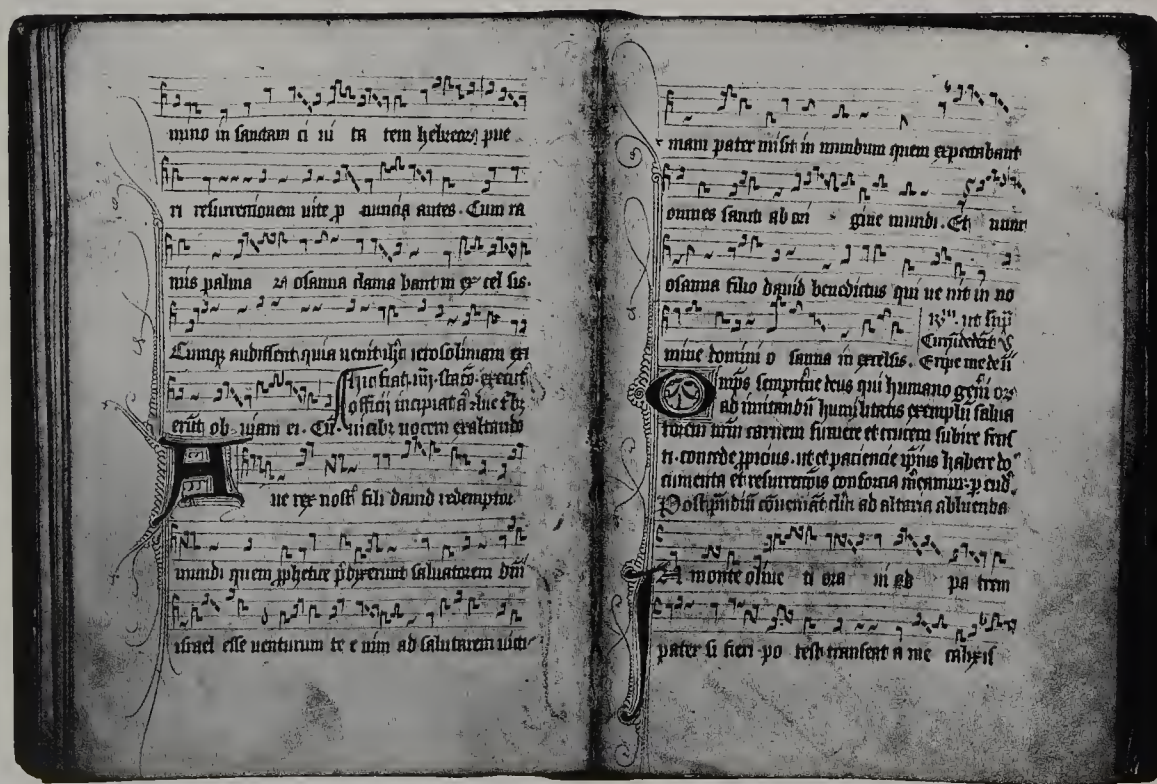 mino in sanctam ci ui ta tem hebreoꝝ pue
ri resurrectionem uite p nuncia antes. Cum ra
mis palma ꝝ osanna clama bant in ex cel sis.
Cumqꝫ audissent quia uenit ihc ierosolimam exi
erūt ob uiam ei. Cū.
Hic fiat. iiij. stacō.
officij incipiat ā
uicibꝫ uocem exaltando
A ue rex nosṫ fili dauid redemptor
mundi quem ꝓphete p̄dixerunt saluatorem dm̄i
israel esse uenturum te e nim ad salutarem uicti
mam pater misit in mundum quem expectabant
omnes sancti ab ori gine mundi. Et nunc
osanna filio dauid benedictus qui ue nit in no
mine domini o sanna in excelsis.
Eripe me de
Omps sempit̄ne deus qui humano gen̄i
ad imitandū humilitatis exemplū salua
torem nr̄m carnem sumere et crucem subire fecis
ti. concede ꝓpicius. ut et paciencie ip̄ius habere do
cumenta et resurrectōis consorcia m̄eamur. ꝑ eūd.
Post p̄ndiū cōueniāt cl̄ici ad altaria abluenda
In monte oliue ti ora ui ad pa trem
pater si fieri po test transeat a me calix is